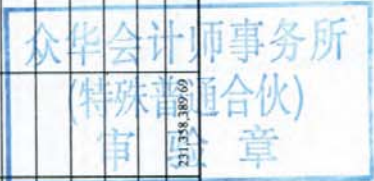 众华会计师事务所
(特殊普通合伙)
审验章
231,358,389.69